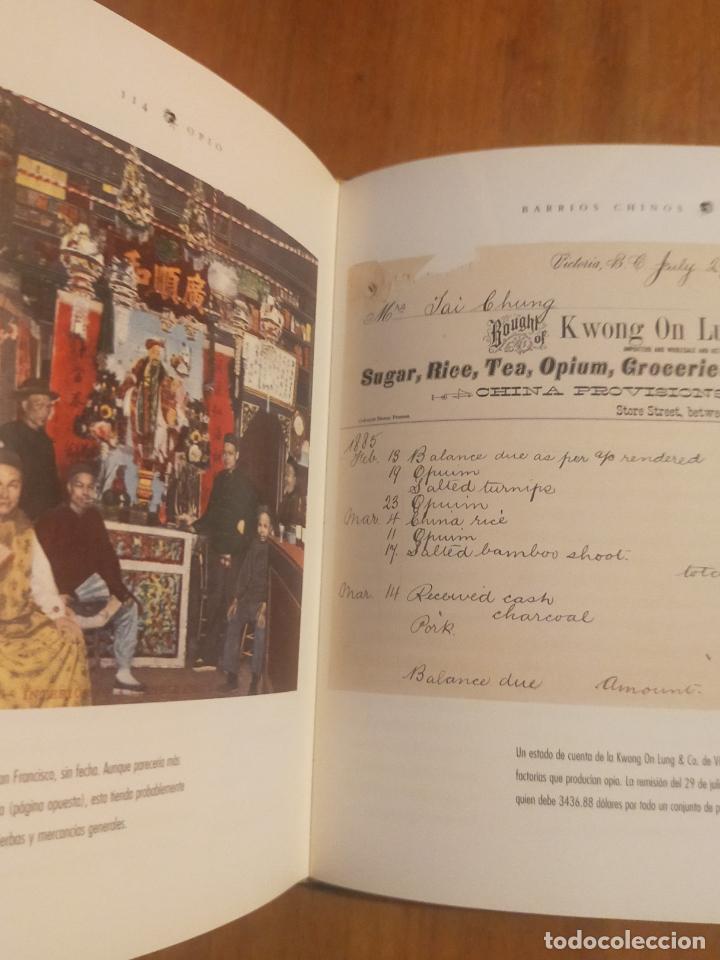 114 OPIO
和順廣
an Francisco, sin fecha. Aunque parecería más
a (página opuesta), esta tienda probablemente
ierbas y mercancías generales.
BARRIOS CHINOS
Victoria, B.C. July 2
Mrs Tai Chung
Bought of Kwong On Lu
IMPORTERS AND WHOLESALE AND RE
Sugar, Rice, Tea, Opium, Grocerie
CHINA PROVISIONS
Store Street, betw
1885
Feb. 13 Balance due as per a/c rendered
19 Opium
Salted turnips
23 Opium
Mar 4 China rice
11 Opium
17 Salted bamboo shoot.
tota
Mar. 14 Received cash
charcoal
Pork
Balance due Amount.
Un estado de cuenta de la Kwong On Lung & Co. de Vi
factorías que producían opio. La remisión del 29 de juli
quien debe 3436.88 dólares por todo un conjunto de p
todocoleccion
todocoleccion.net